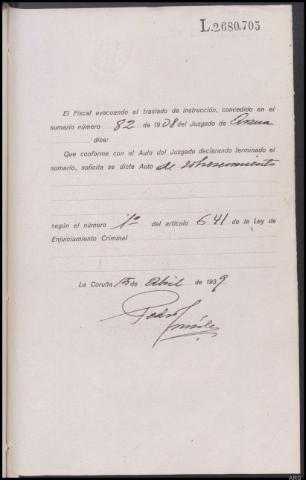 L.2680.705
El Fiscal evacuando el traslado de instrucción, concedido en el
sumario número 82 de 1938 del Juzgado de Arzua
dice:
Que conforme con el Auto del Juzgado declarando terminado el
sumario, solicita se dicte Auto de sobreseimiento
según el número 1º del artículo 641 de la Ley de
Enjuiciamiento Criminal
La Coruña 15 de Abril de 1939
Pedro González